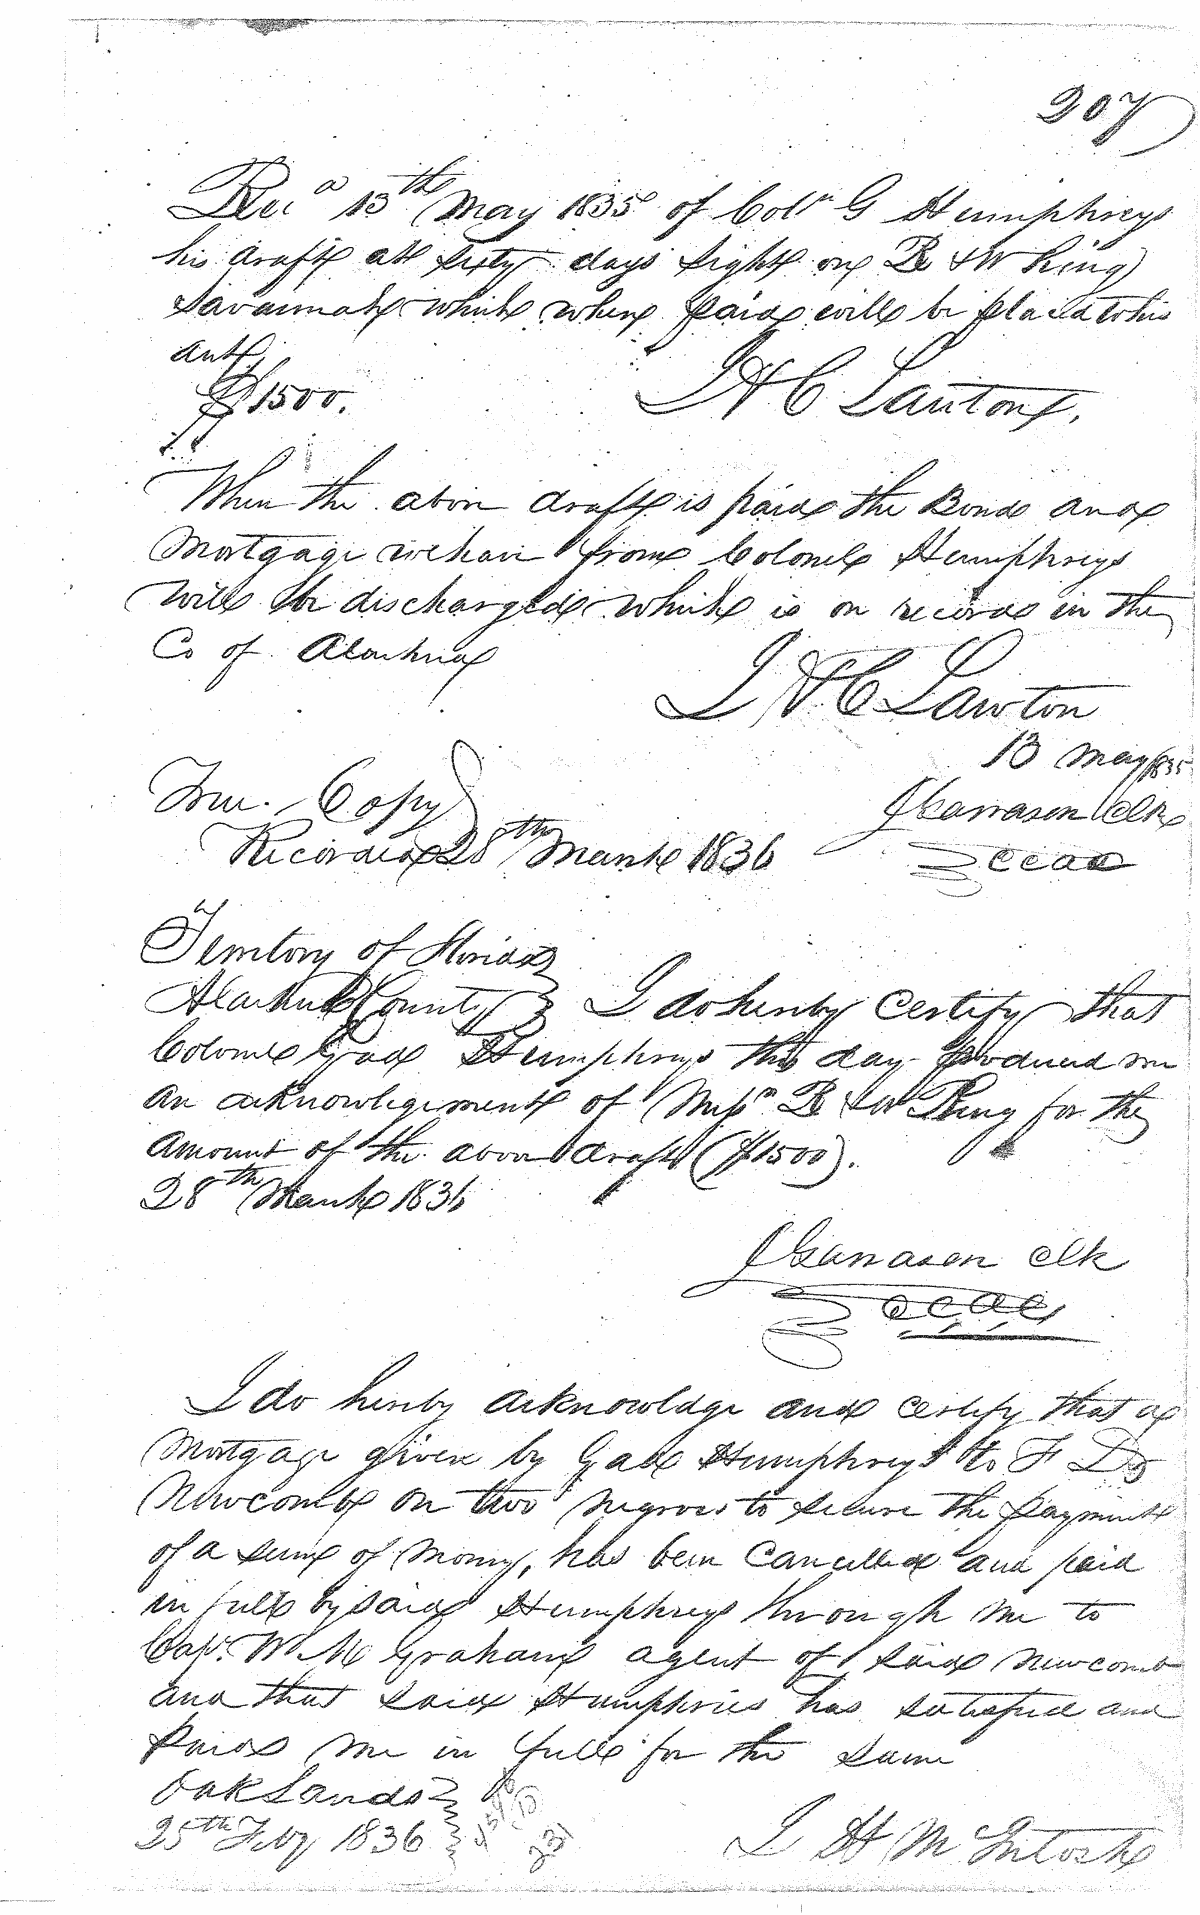 207
Recd 13th May 1835 of Coln G Humphreys
his draft at sixty days sight on R & W King
Savannah which when paid will be placed to his
acct,
$1500.
I H C Lawton.
When the above draft is paid the Bond and
Mortgage we have from Colonel Humphreys
will be discharged which is on record in the
Co of Alachua
I H C Lawton
13 May 1835
True Copy
J Garrason Clk
Recorded 28th March 1836
CCAC
Territory of Florida
Alachua County I do hereby Certify that
Colonel Gad Humphreys this day produced me
an acknowlegement of Messrs R & W King for the
amount of the above draft ($1500).
28th March 1836
J Garrason Clk
CCAC
I do hereby acknowledge and certify that a
Mortgage given by Gad Humphreys to F D
Newcomb on two negroes to secure the payment
of a sum of money, has been Cancelled and paid
in full by said Humphreys through me to
Capt. W M Graham agent of said Newcomb
and that said Humphries has satisfied and
paid me in full for the same
Oaklands
25th Feby 1836
J H McIntosh